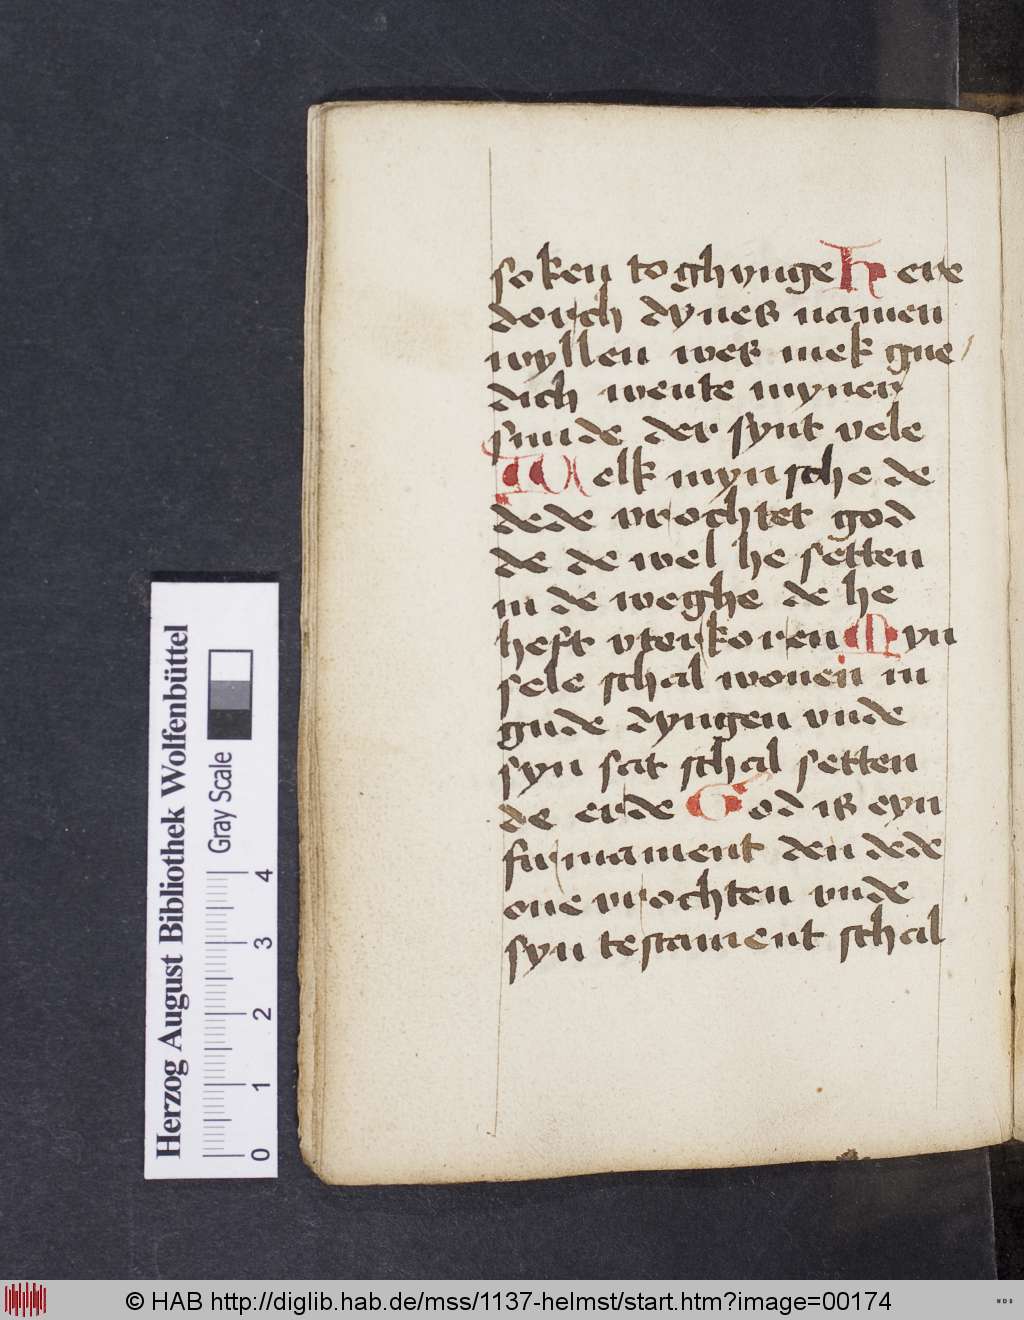 soken toghynge Here
dorch dynes namen
wyllen wes mek gne/
dich wente myner
sunde der synt vele
Welk mynsche de
dede vrochtet god
de de wel he setten
in de weghe de he
heft vterkoren Myn
sele schal wonen in
gude dyngen vnde
syn sat schal setten
de erde God is eyn
firmament den dede
one vrochten vnde
syn testament schal
Herzog August Bibliothek Wolfenbüttel
Gray Scale
0 1 2 3 4
© HAB http://diglib.hab.de/mss/1137-helmst/start.htm?image=00174